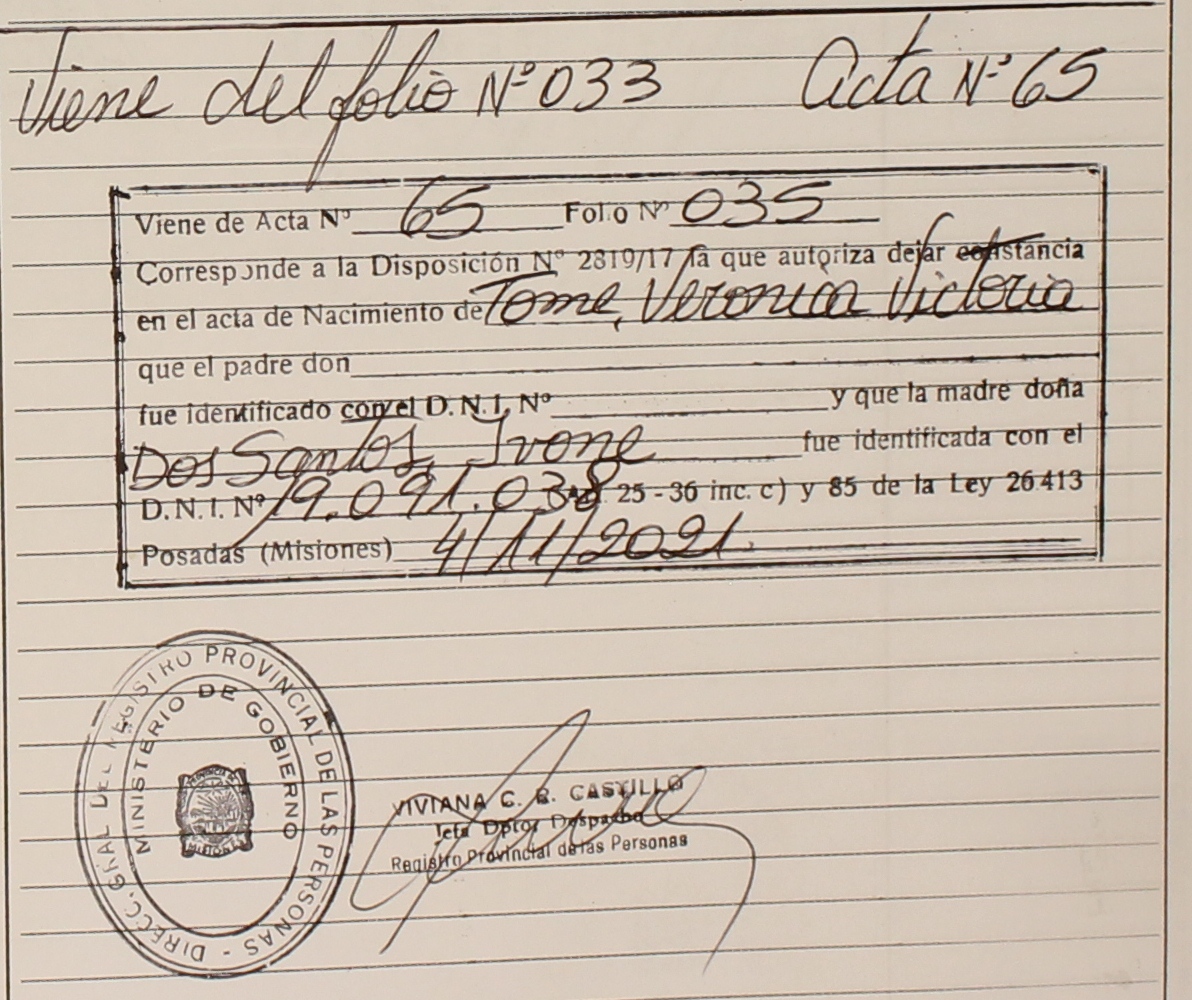 Viene del folio Nº 033 Acta Nº 65
Viene de Acta Nº 65 Folio Nº 035
Corresponde a la Disposición Nº 2819/17 la que autoriza dejar constancia
en el acta de Nacimiento de Tome, Veronica Victoria
que el padre don
fue identificado con el D.N.I. Nº y que la madre doña
Dos Santos, Ivone fue identificada con el
D.N.I. Nº 19.091.038 Art. 25 - 36 inc. c) y 85 de la Ley 26413
Posadas (Misiones) 4/11/2021
DIRECC. GRAL DEL REGISTRO PROVINCIAL DE LAS PERSONAS -
MINISTERIO DE GOBIERNO
PROVINCIA DE
MISIONES
VIVIANA C. B. CASTILLO
Jefa Dptor Despacho
Registro Provincial de las Personas